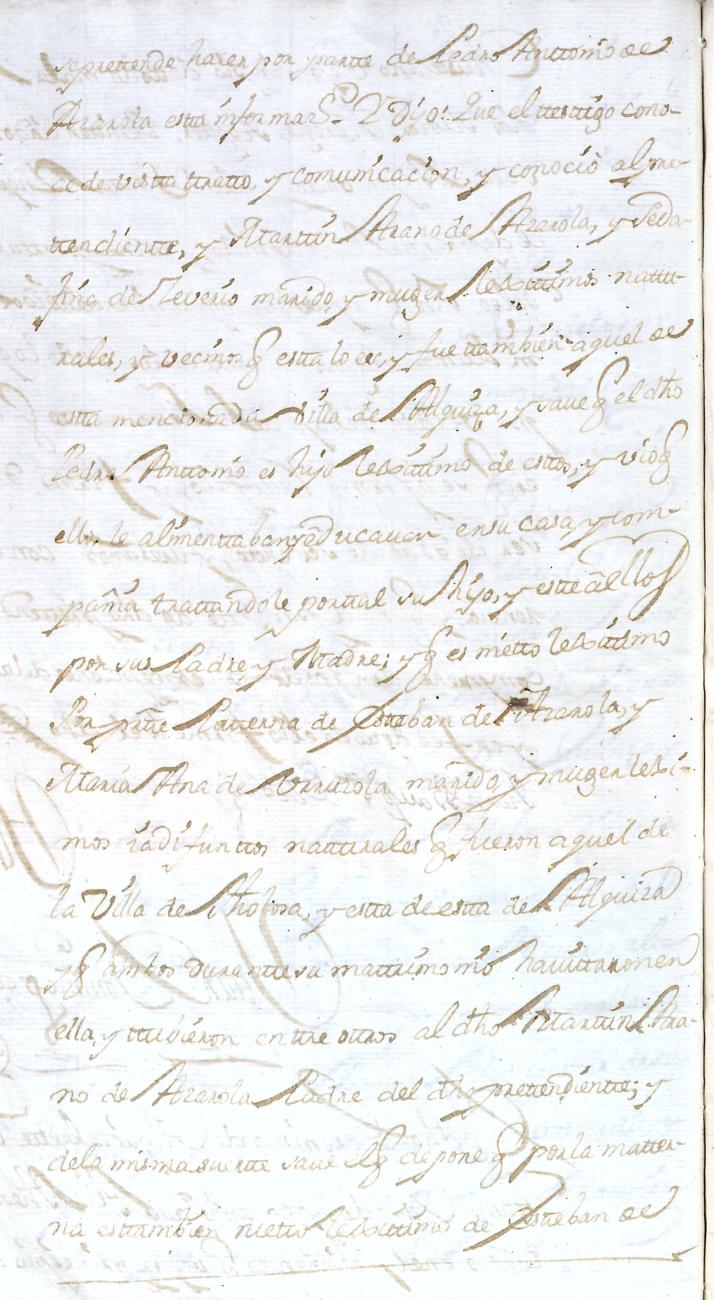 sepretende hazer por partte de Pedro Anttonio de
Azarola estta informaz.on Y Dijo: Que el testtigo cono-
ce de vistta tratto, y comunicacion, y conocio al pre-
tendientte, y Marttin Arano de Azarola, y Seda-
fina de marido, y muger lexittimos nattu-
rales, y vecinos q estta lo es, y fue ttambien aquel de
estta mencionada Villa de Alquiza, y save q el dho
Pedro Anttonio es hijo lexittimo de esttos, y vio q
ellos le alimenttaban y educavan en su casa, y com-
pañia trattandole por ttal su hijo, y estte a ellos
por sus Padre y Madre; y q es nietto lexittimo
Por partte Patterna de Esteban de Azarola, y
Maria Ana de Urruzola marido y muger lexi-
mos ia difunttos natturales q fueron aquel de
la Villa de Tholosa, y estta de estta de Alquiza
y q ambos durantte su mattrimonio havittaron en
ella, y ttubieron enttre ottros al dho Marttin Ara-
no de Azarola Padre del dho pretendientte; y
dela misma suertte save el q depone q por la matter-
na es ttambien nietto lexittimo de Esteban de